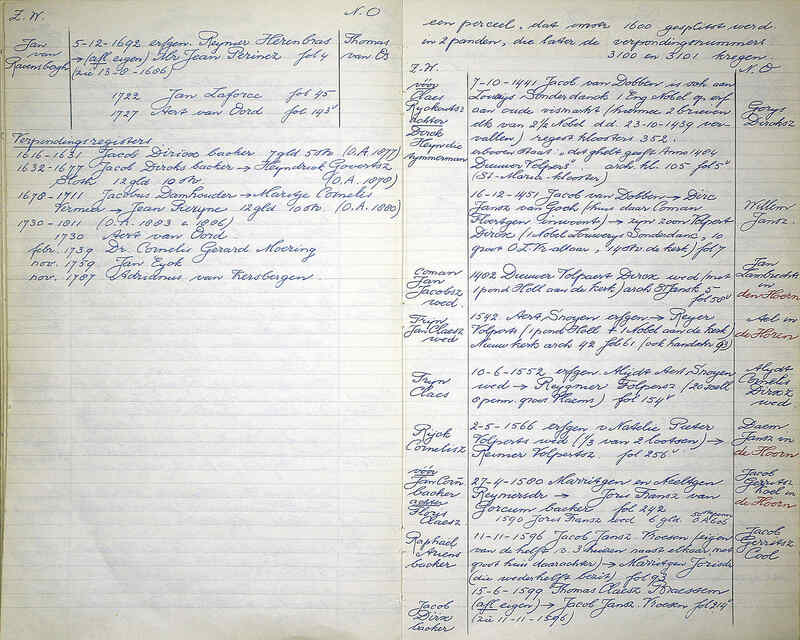 Z.W. N.O
Jan van Ravensbergh
5-12-1692 erfgen. Reynier Herenbras
→ (afl eigen) Mr Jean Perinez fol 4
(zie 13-8-1686)
Thomas van Es
1722 Jan Laforce fol 45
1727 Aert van Oord fol 143v
Verpondingsregisters
1616-1631 Jacob Dirixx backer 7 gld 5 st (O.A. 1877)
1632-1677 Jacob Dircks backer → Heyndrick Govertsz
Stoth 12 gld 10 st (O.A. 1878)
1678-1711 Jacobus Damhouder → Maritje Cornelis
Vermeer → Jean Perijne 12 gld 10 st. (O.A. 1880)
1730-1811 (O.A. 1883 & 1886)
1730 Aert van Oord
febr. 1739 Dr. Cornelis Gerard Moering
nov. 1759 Jan Eyck
nov. 1787 Adrianus van Kersbergen
een perceel, dat omstr 1600 gesplitst werd
in 2 panden, die later de verpondingsnummers
3100 en 3101 kregen
Z.W. N.O
vóór Claes
achter Dirck
Heyndrie
tymmerman
7-10-1441 Jacob van Dobben is sch aan
op erf
aan oude vismarkt (hiermee 2 brieven
elk van 2½ Nobel d.d. 23-10-1439 ver-
vallen) regest kloosters 352.
Dieuwer Volpers arch kl. 105 fol 5v
(St-Maria-klooster)
Gorys Dircksz
16-12-1451 Jacob van Dobben → Dirc
Jansz van Gook (huis daer Coman
Floertgen inwoont) → zyn zoon Volpert
Dircxx (1 Nobel
groot O.L.Vr altaar, de kerk) fol 7
Willem Jansz.
Coman Jan Jacobsz wed.
1482 Dieuwer Volpaert Dircxz wed (met
1 pond Holl aan de kerk) arch St Jansk 5
fol 50v
Jan Lambrechts in den Hoorn
Tryn Jan Claesz wed
1542 Aert Snoyen erfgen → Reyer
Volperts (1 pond Holl + 1 Nobel aan de kerk)
Nieuwkerk arch 42 fol 61 (ook handelr 93)
Ael in de Horen
Tryn Claes
10-6-1552 erfgen Alydt Aert Snoyen
wed → Reymner Volpertsz (20 schell
8 penn. groot Vlaems) fol 154v
Alydt Cornelis Dircxz wed
Ryck Cornelisz
2-5-1566 erfgen v Natelie Pieter
Volperts wed (1/3 van 2 lootsen) →
Reimer Volpertsz fol 256v
Daem Jansz in de Hoorn
vóór Jan Corn backer
achter Floris Claesz
27-4-1580 Marritgen en Neeltgen
Reymersdr → Joris Fransz van
Gorcum backer fol 242
1590 Joris Fransz wed 6 gld.
Jacob Gerritsz in de Hoorn
Raphael Ariens backer
11-11-1596 Jacob Jansz Troosen (eigen
van de helft v. 3 huizen naast elkaar, met
groot huis daarachter) → Marritgen Jorisdr
(die wederhelft bezit) fol 93
Jacob Gerritsz Cool
Jacob Dircx backer
15-6-1599 Thomas Claesz Bressem
(afl eigen) → Jacob Jansz. Troosen fol 214v
(zie 11-11-1596)